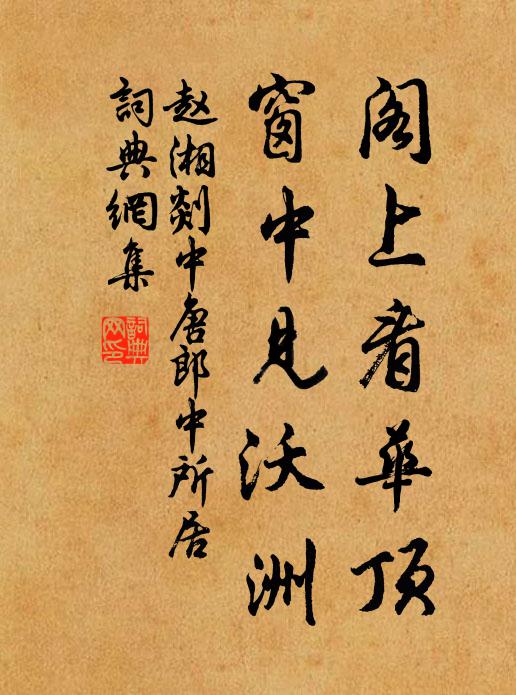 阁上看华顶
窗中见沃洲
赵湘剡中唐郎中所居
詞典網集
詞典網印